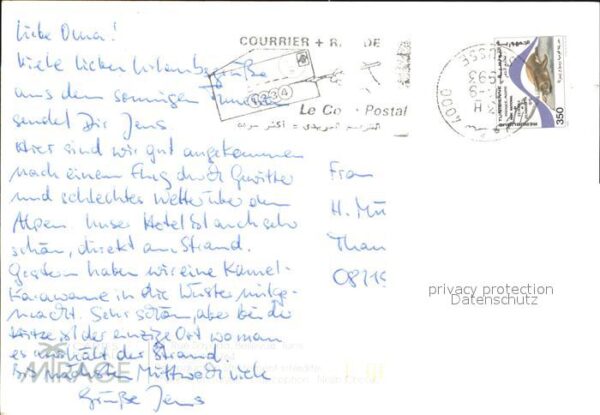 Liebe Oma!
Viele lieben Urlaubsgrüße
aus dem sonnigen Tunesien
sendet Dir Jens
Hier sind wir gut angekommen
nach einem Flug durch Gewitter
und schlechtes Wetter über den
Alpen. Unser Hotel ist auch sehr
schön, direkt am Strand.
Gestern haben wir eine Kamel-
Karawane in die Wüste mitge-
macht. Sehr schön, aber bei der
Hitze ist der einzige Ort wo man
es aushält der Strand.
Bis nächsten Mittwoch viele
Grüße Jens
COURRIER + R DE
1234
Le Co Postal
4000
TUNISIENNE
350
Frau
H. Mü
Than
privacy protection
Datenschutz
MIRAGE